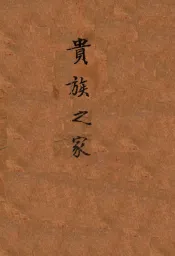 貴族之家